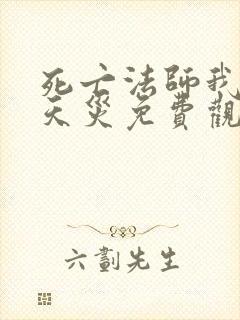 死亡法師我
天災免費觀
六劃先生